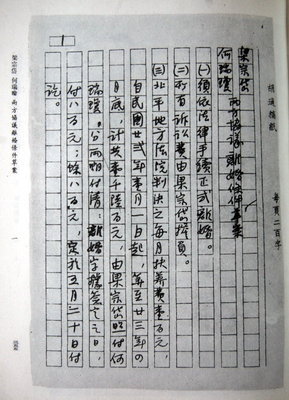 胡適稿紙
每頁二百字
梁宗岱
何瑞瓊
兩方協議離婚條件草案
㈠須依法律手續正式離婚。
㈡所有訴訟費由梁宗岱擔負。
㈢北平地方法院判決之每月扶養費壹百元,
自民國廿弍年一月一日起,算至廿三年四
月底,計共壹千陸百元,由梁宗岱照付何
瑞瓊。分兩期付清:離婚字據簽定之日,
付八百元;餘八百元,定於五月二十日付
訖。
梁宗岱 何瑞瓊 兩方協議離婚條件草案
一